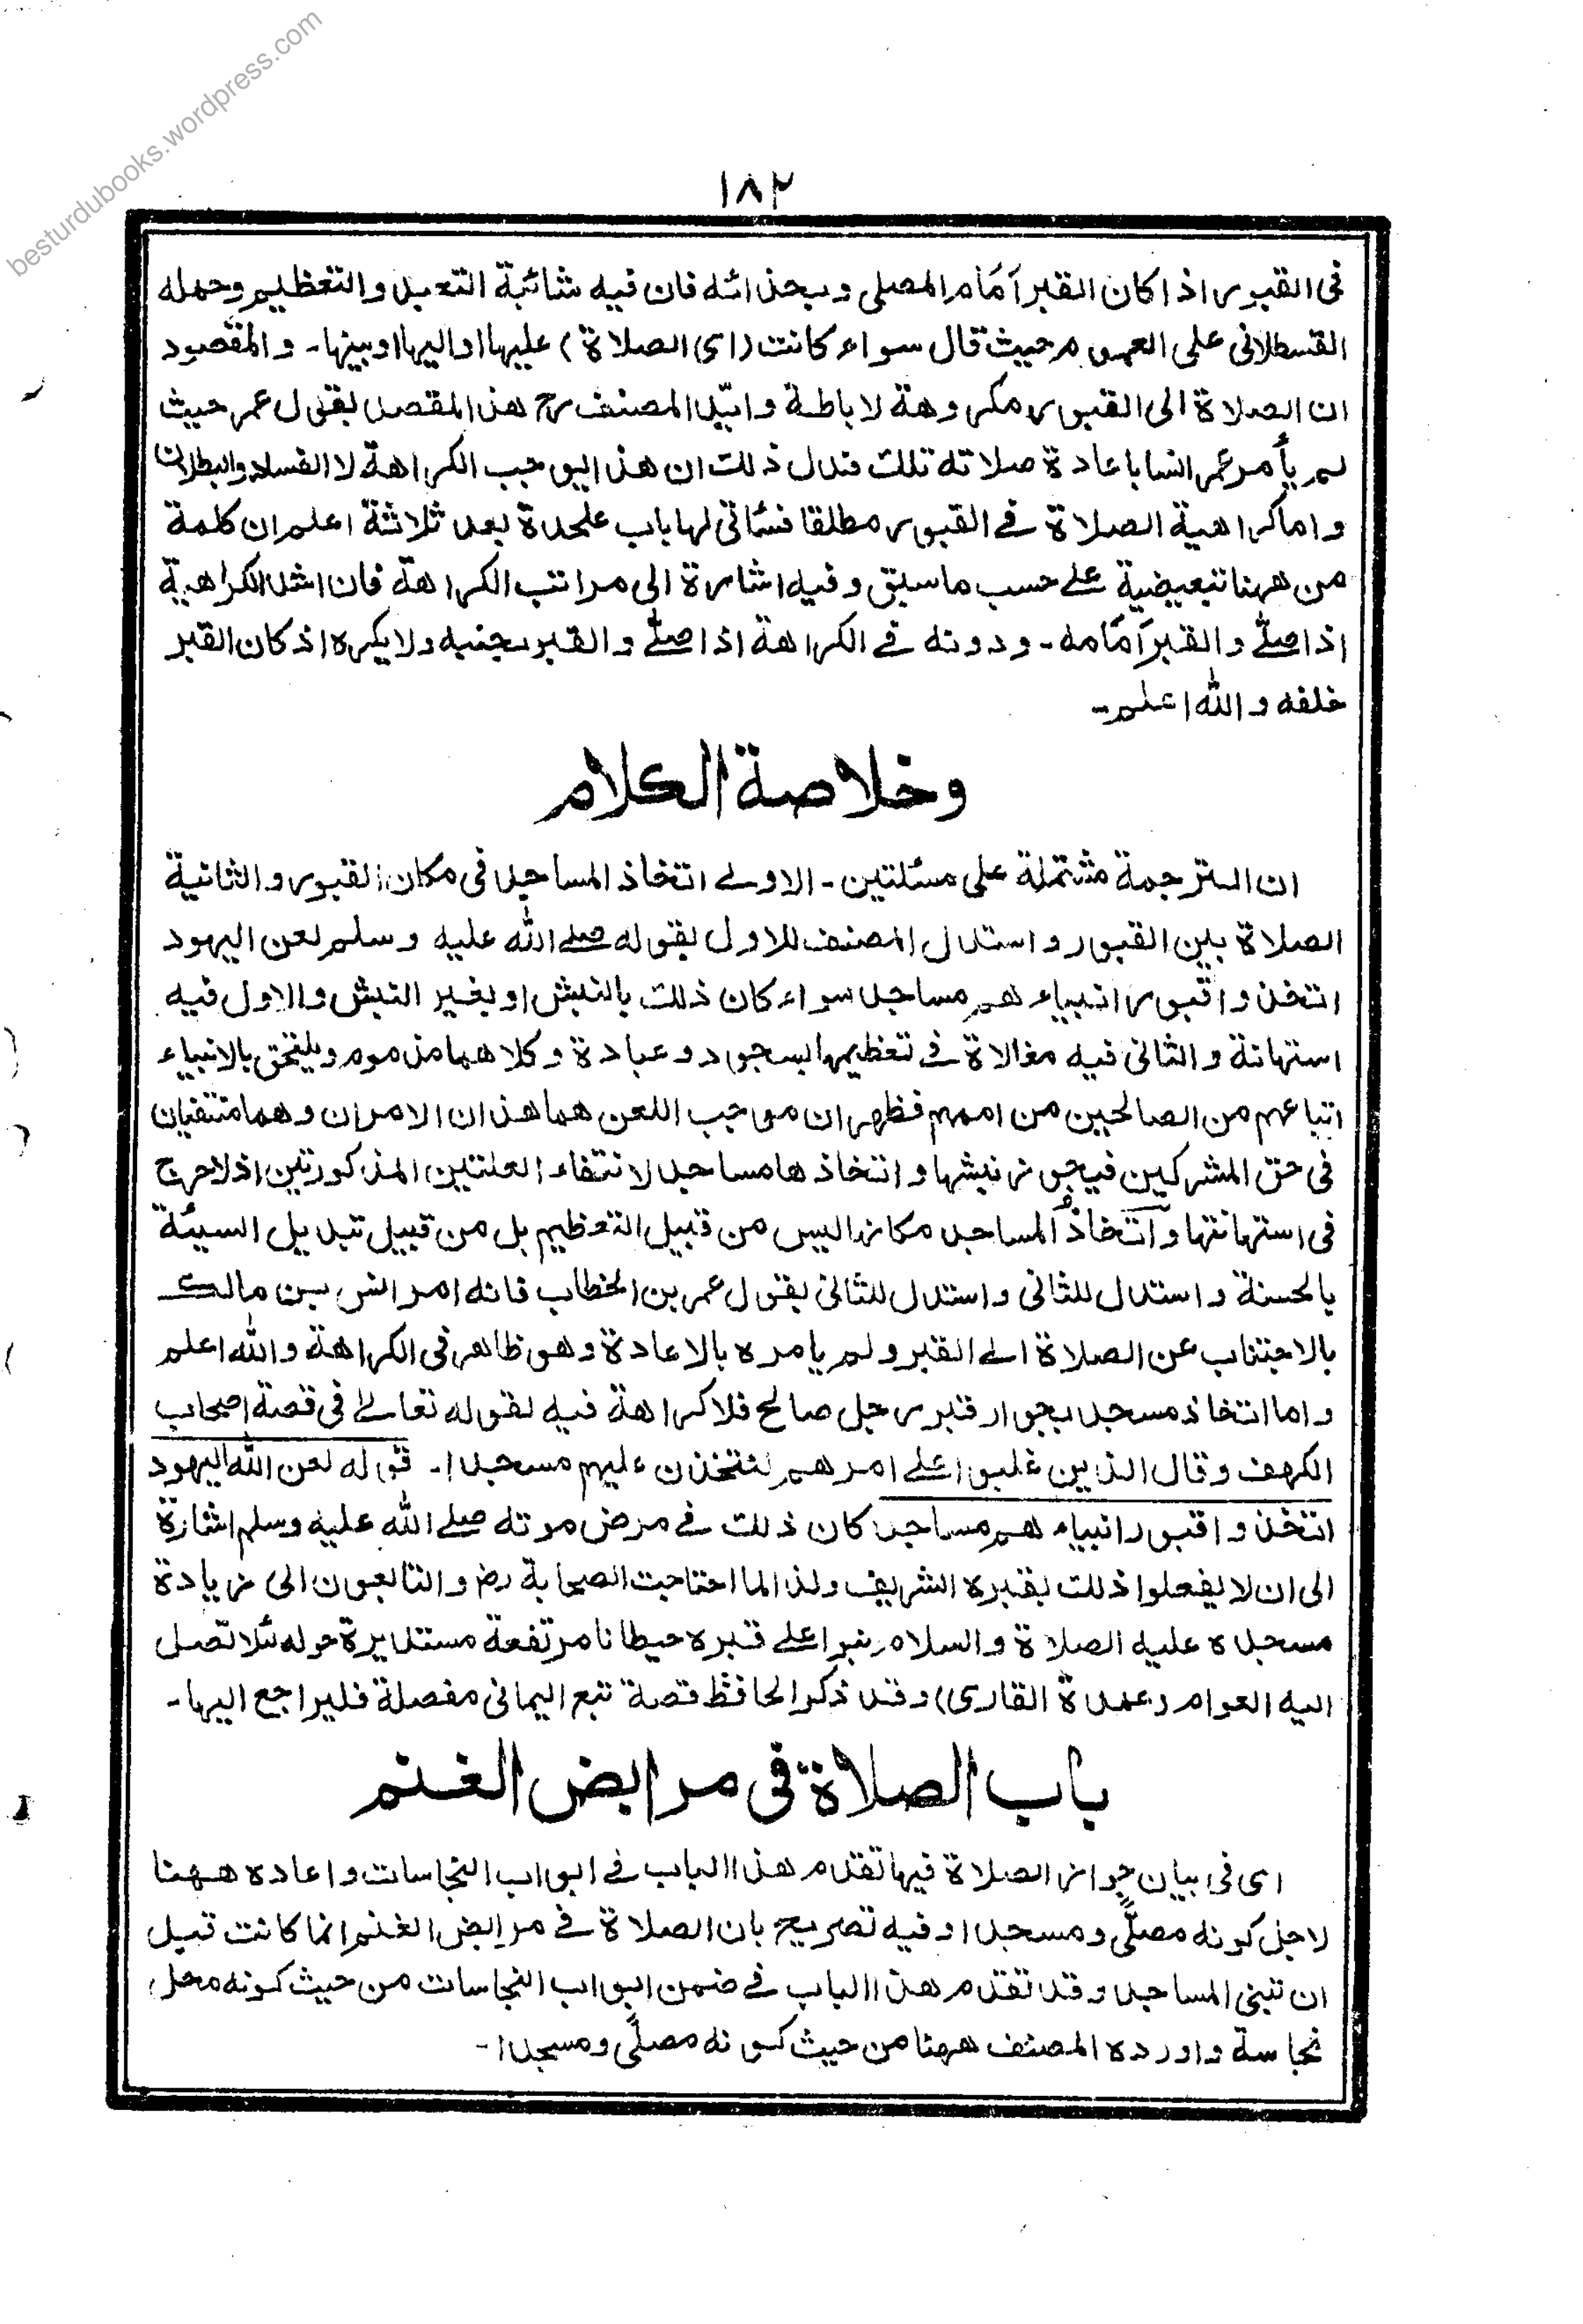 besturdubooks.wordpress.com
١٨٢
فى القبور اذا كان القبر أمام المصلى وبحذائه فان فيه شائبة التعبد والتعظيم وحمله
القسطلانى على العموم حيث قال سواء كانت (اى الصلاة) عليها او اليها او بينها۔ والمقصود
ان الصلاة الى القبور مكروهة لا باطلة وايّد المصنف رح هذا المقصد بقول عمر حيث
لم يأمر عمر انسا باعادة صلاته تلك فدل ذلك ان هذا يوجب الكراهة لا الفساد والبطلان
واما كراهية الصلاة فى القبور مطلقا فسأتى لها باب علحدة بعد ثلاثة اعلم ان كلمة
من ههنا تبعيضية على حسب ما سبق وفيه اشارة الى مراتب الكراهة فان اشد الكراهية
اذا صلّى والقبر أمامه۔ ودونه فى الكراهة اذا صلّى والقبر بجنبه ولا يكره اذ كان القبر
خلفه والله اعلم۔
وخلاصة الكلام
ان الترجمة مشتملة على مسئلتين۔ الاولى اتخاذ المساجد فى مكان القبور والثانية
الصلاة بين القبور واستدل المصنف للاول بقوله صلى الله عليه وسلم لعن اليهود
اتخذوا قبور انبياء هم مساجد سواء كان ذلك بالنبش او بغير النبش والاول فيه
استهانة والثانى فيه مغالاة فى تعظيمها بسجود وعبادة وكلاهما مذموم ويلتحق بالانبياء
اتباعهم من الصالحين من اممهم فظهر ان موجب اللعن هما هذان الامران وهما منتفيان
فى حق المشركين فيجوز نبشها واتخاذها مساجد لانتفاء العلتين المذكورتين اذ لا حرج
فى استهانتها واتخاذُ المساجد مكانها ليس من قبيل التعظيم بل من قبيل تبديل السيئة
بالحسنة واستدل للثانى واستدل للثانى بقول عمر بن الخطاب فانه امر انس بن مالك
بالاجتناب عن الصلاة الى القبر ولم يامره بالاعادة وهو ظاهر فى الكراهة والله اعلم
واما اتخاذ مسجد بجوار قبر رجل صالح فلا كراهة فيه لقوله تعالى فى قصة اصحاب
الكهف وقال الذين غلبوا على امرهم لنتخذن عليهم مسجدا۔ قوله لعن الله اليهود
اتخذوا قبور انبياء هم مساجد كان ذلك فى مرض موته صلى الله عليه وسلم اشارة
الى ان لا يفعلوا ذلك بقبره الشريف ولذا لما احتاجت الصحابة رض والتابعون الى زيادة
مسجده عليه الصلاة والسلام بنوا على قبره حيطانا مرتفعة مستديرة حوله لئلا تصل
اليه العوام (عمدة القارى) وقد ذكر الحافظ قصة تبع اليمانى مفصلة فليراجع اليها۔
باب الصلاة فى مرابض الغنم
اى فى بيان جواز الصلاة فيها تقدم هذا الباب فى ابواب النجاسات واعاده ههنا
لاجل كونه مصلًّى ومسجدا وفيه تصريح بان الصلاة فى مرابض الغنم انما كانت قبل
ان تبنى المساجد وقد تقدم هذا الباب فى ضمن ابواب النجاسات من حيث كونه محل
نجاسة واورده المصنف ههنا من حيث كونه مصلًّى ومسجدا۔